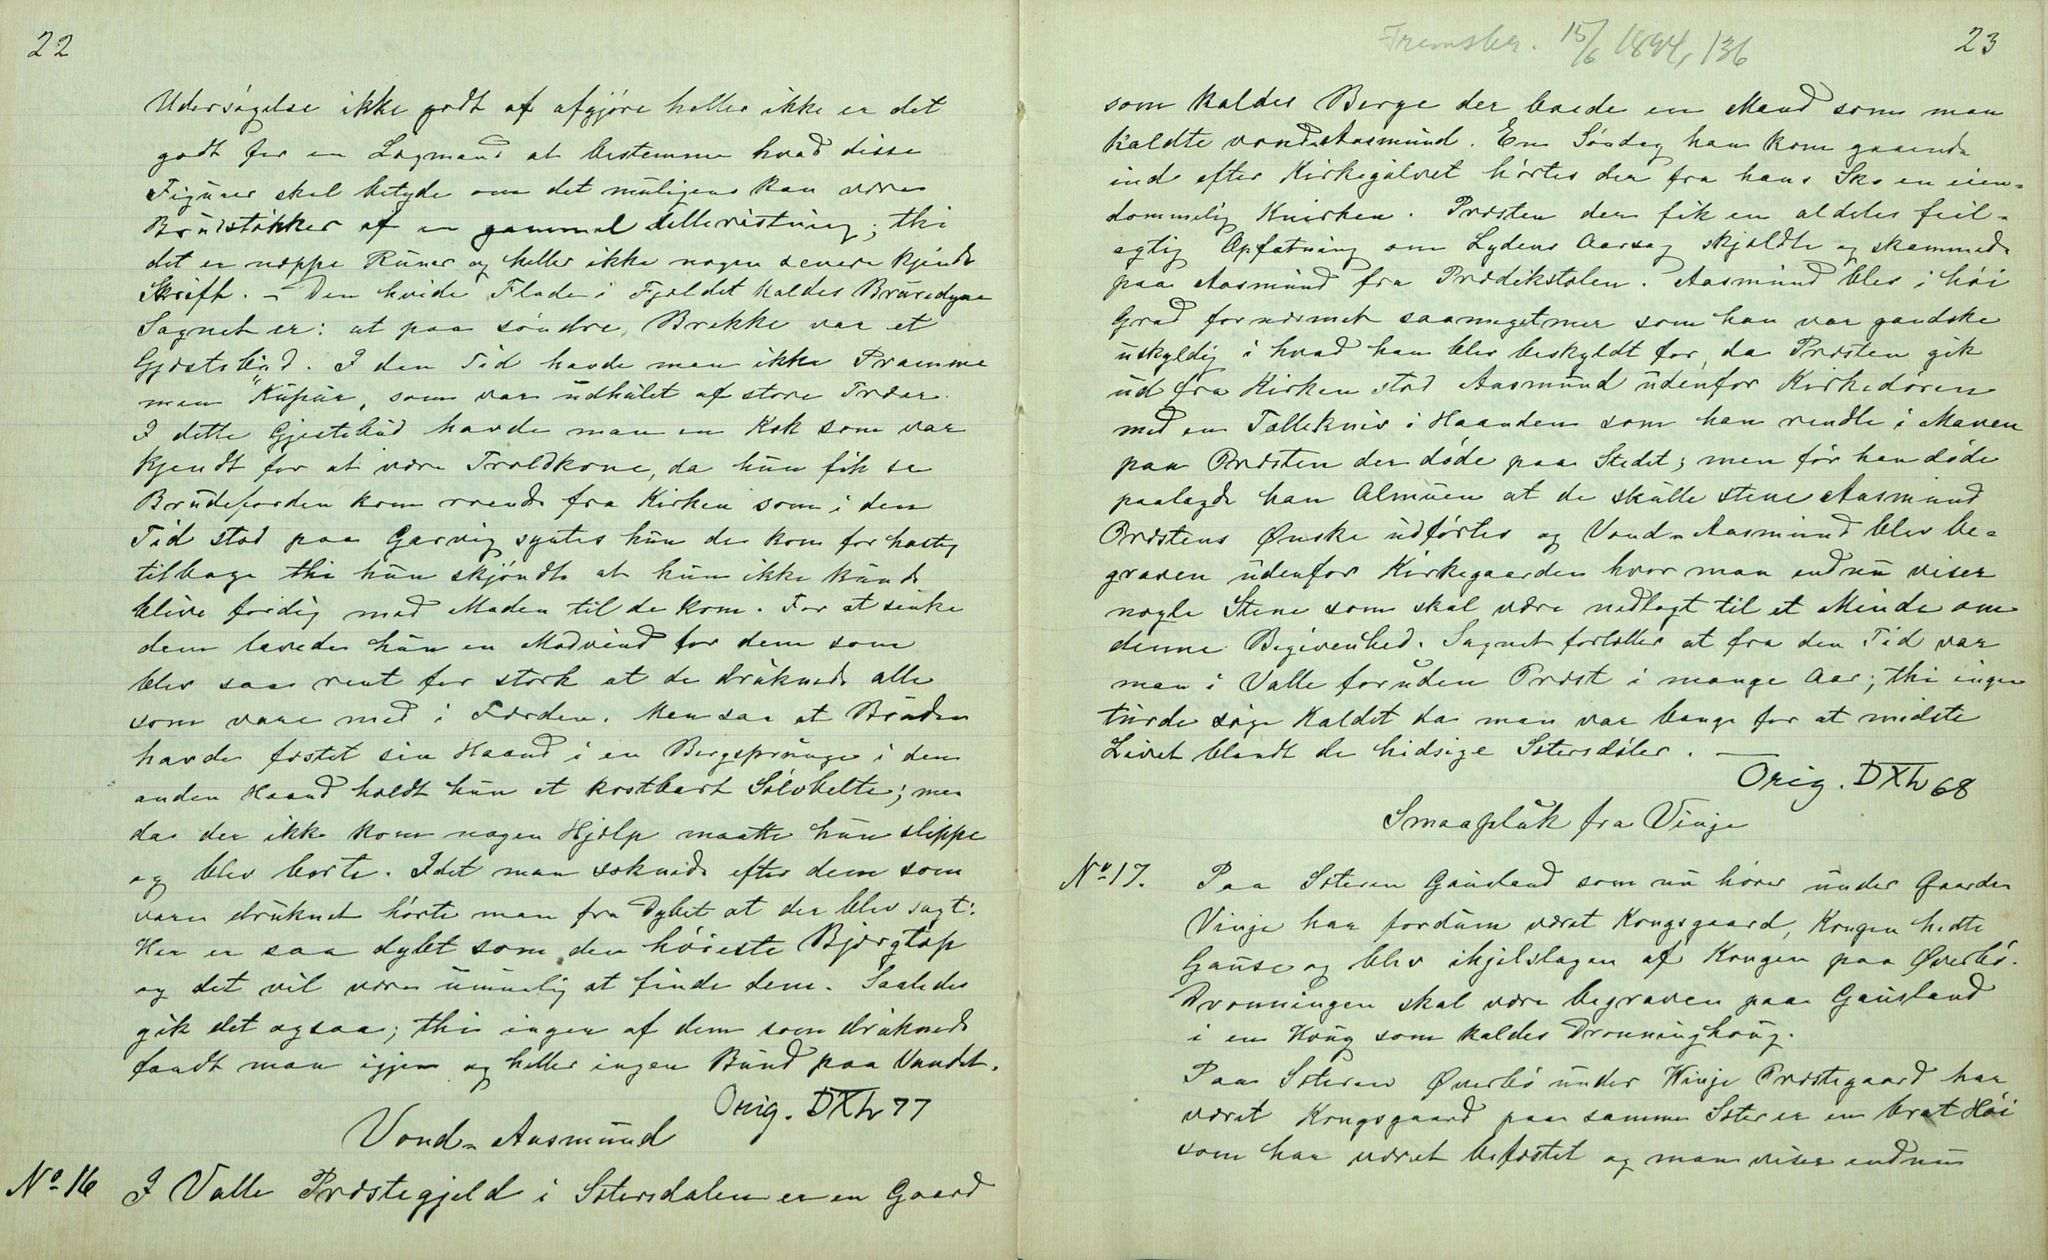 22
Udersøgelse ikke godt af afgjøre heller ikke er det
godt for en Lægmand at bestemme hvad disse
Figurer skal betyde om det muligens kan være
Brudstøkker af en gammel Helleristning; thi
det er neppe Runer og heller ikke nogen senere kjendt
Skrift. – Den hvide Flade i Fjældet kaldes Bruredyna
Sagnet er: at paa søndre Brekke var et
Gjæstebud. I den Tid havde man ikke Pramme
men "Kupur, som var udhulet af store Træer.
I dette Gjestebud havde man en Kok som var
kjendt for at være Troldkone, da hun fik se
Brudefærden kom roende fra Kirken som i den
Tid stod paa Garvig syntes hun de kom for hastig
tilbage thi hun skjøndte at hun ikke kunde
blive færdig med Maden til de kom. For at sinke
dem lavede hun en Modvind for dem som
blev saa rent for stærk at de druknede alle
som vare med i Færden. Men saa at Bruden
havde fæstet sin Haand i en Bergsprunge i den
anden Haand holdt hun et kostbart Sølvbelte; men
da der ikke kom nogen Hjælp maatte hun slippe
og blev borte. Idet man soknede efter dem som
vare druknet hørte man fra Dybet at der blev sagt:
Her er saa dybt som den høieste Bjergtop
og det vil være umuelig at finde dem. Saaledes
gik det ogsaa; thi ingen af dem som druknede
fandt man igjen og heller ingen Bund paa Vandet.
Orig. DXL 77
Vond-Aasmund
No 16 I Valle Præstegjeld i Sætersdalen er en Gaard
Fremsber. 15/6 1894, 136
23
som kaldes Berge der boede en Mand som man
kaldte vond-Aasmund. En Søndag han kom gaaende
ind efter Kirkegulvet hørtes der fra hans Sko en eien=
dommelig Knirken. Præsten der fik en aldeles feil-
agtig Opfatning om Lydens Aarsag skjældte og skammede
paa Aasmund fra Prædikstolen. Aasmund blev i høi
Grad fornærmet saameget mer som han var gandske
uskyldig i hvad han blev beskyldt for, da Præsten gik
ud fra Kirken stod Aasmund udenfor Kirkedøren
med en Tællekniv i Haanden som han rendte i Maven
paa Præsten der døde paa Stedet; men før han døde
paalagde han Almuen at de skulle stene Aasmund
Præstens Ønske udførtes og Vond-Aasmund blev be=
graven udenfor Kirkegaarden hvor man endnu viser
nogle Stene som skal være nedlagt til et Minde om
denne Begivenhed. Sagnet fortæller at fra den Tid var
man i Valle foruden Præst i mange Aar; thi ingen
turde søge Kaldet da man var bange for at midste
Livet blandt de hidsige Sætersdøler. —
Orig. DXL 68
Smaapluk fra Vinje
No 17. Paa Sæteren Gausland som nu hører under Gaarden
Vinje har fordum været Kongsgaard, Kongen hedte
Gause og blev ihjelslagen af Kongen paa Øverbø.
Dronningen skal være begraven paa Gausland
i en Houg som kaldes Dronninghoug.
Paa Sæteren Øverbø under Vinje Præstegaard har
været Kongsgaard paa samme Sæter er en brat Høi
som har været befæstet og man viser endnu